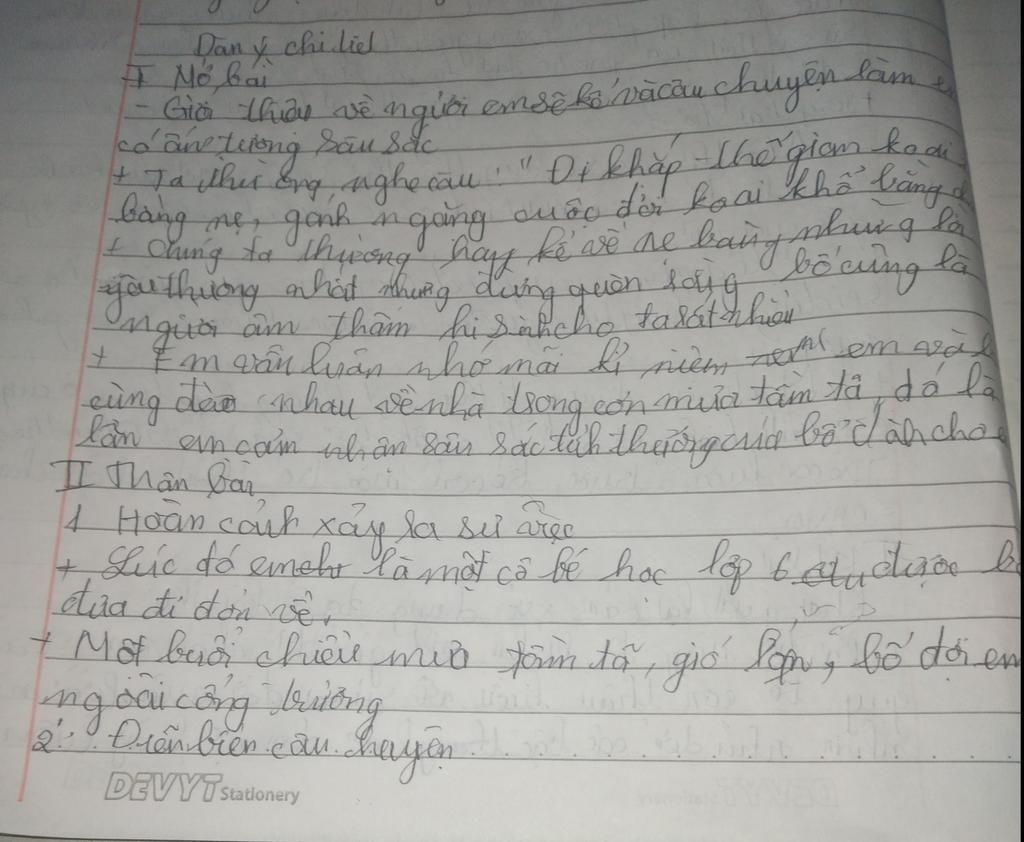 Dàn ý chi tiết
I Mở bài
- Giới thiệu về người em sẽ kể và câu chuyện làm e
có ấn tượng sâu sắc
+ Ta thường nghe câu: "Đi khắp thế gian ko ai
bằng mẹ, gánh nặng cuộc đời ko ai khổ bằng
+ Chúng ta thường hay kể về mẹ bằng những lời
yêu thương nhất nhưng đừng quên rằng bố cũng là
người âm thầm hi sinh cho ta rất nhiều
+ Em vẫn luôn nhớ mãi kỉ niệm em và
cùng đèo nhau về nhà trong cơn mưa tầm tã, đó là
lần em cảm nhận sâu sắc tình thương của bố dành cho
II Thân bài
1 Hoàn cảnh xảy ra sự việc
+ Lúc đó em là một cô bé học lớp 6 được b
đưa đi đón về.
+ Một buổi chiều mưa tầm tã, gió lớn, bố đợi em
ngoài cổng trường
2. Diễn biến câu chuyện
DEVYT Stationery